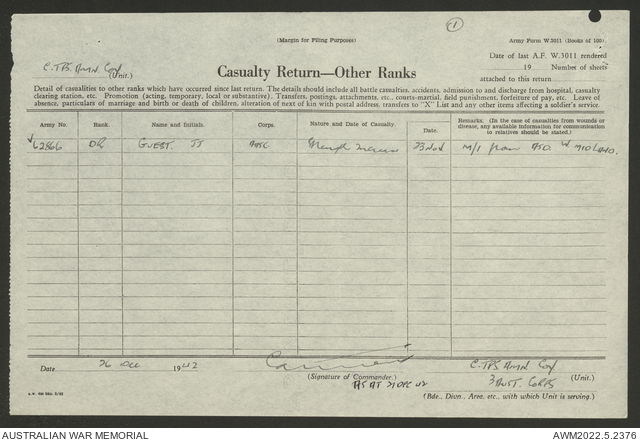 (Margin for Filing Purposes)
1
Army Form W.3011 (Books of 100).
Date of last A.F. W.3011 rendered
19 Number of sheets
attached to this return
C. TPS AMN. Coy (Unit.)
Casualty Return—Other Ranks
Detail of casualties to other ranks which have occurred since last return. The details should include all battle casualties, accidents, admission to and discharge from hospital, casualty
clearing station, etc. Promotion (acting, temporary, local or substantive). Transfers, postings, attachments, etc., courts-martial, field punishment, forfeiture of pay, etc. Leave of
absence, particulars of marriage and birth or death of children, alteration of next of kin with postal address, transfers to "X" List and any other items affecting a soldier's service.
Army No. Rank. Name and Initials. Corps. Nature and Date of Casualty. Date. Remarks. (In the case of casualties from wounds or
disease, any available information for communication
to relatives should be stated.)
62866 DR GUEST. JJ AASC 23 Nov M/I from
Date 26 Dec 1942 C. TPS AMN Coy (Unit.)
(Signature of Commander.)
3 AUST. CORPS
(Bde., Divn., Area, etc., with which Unit is serving.)
AUSTRALIAN WAR MEMORIAL AWM2022.5.2376